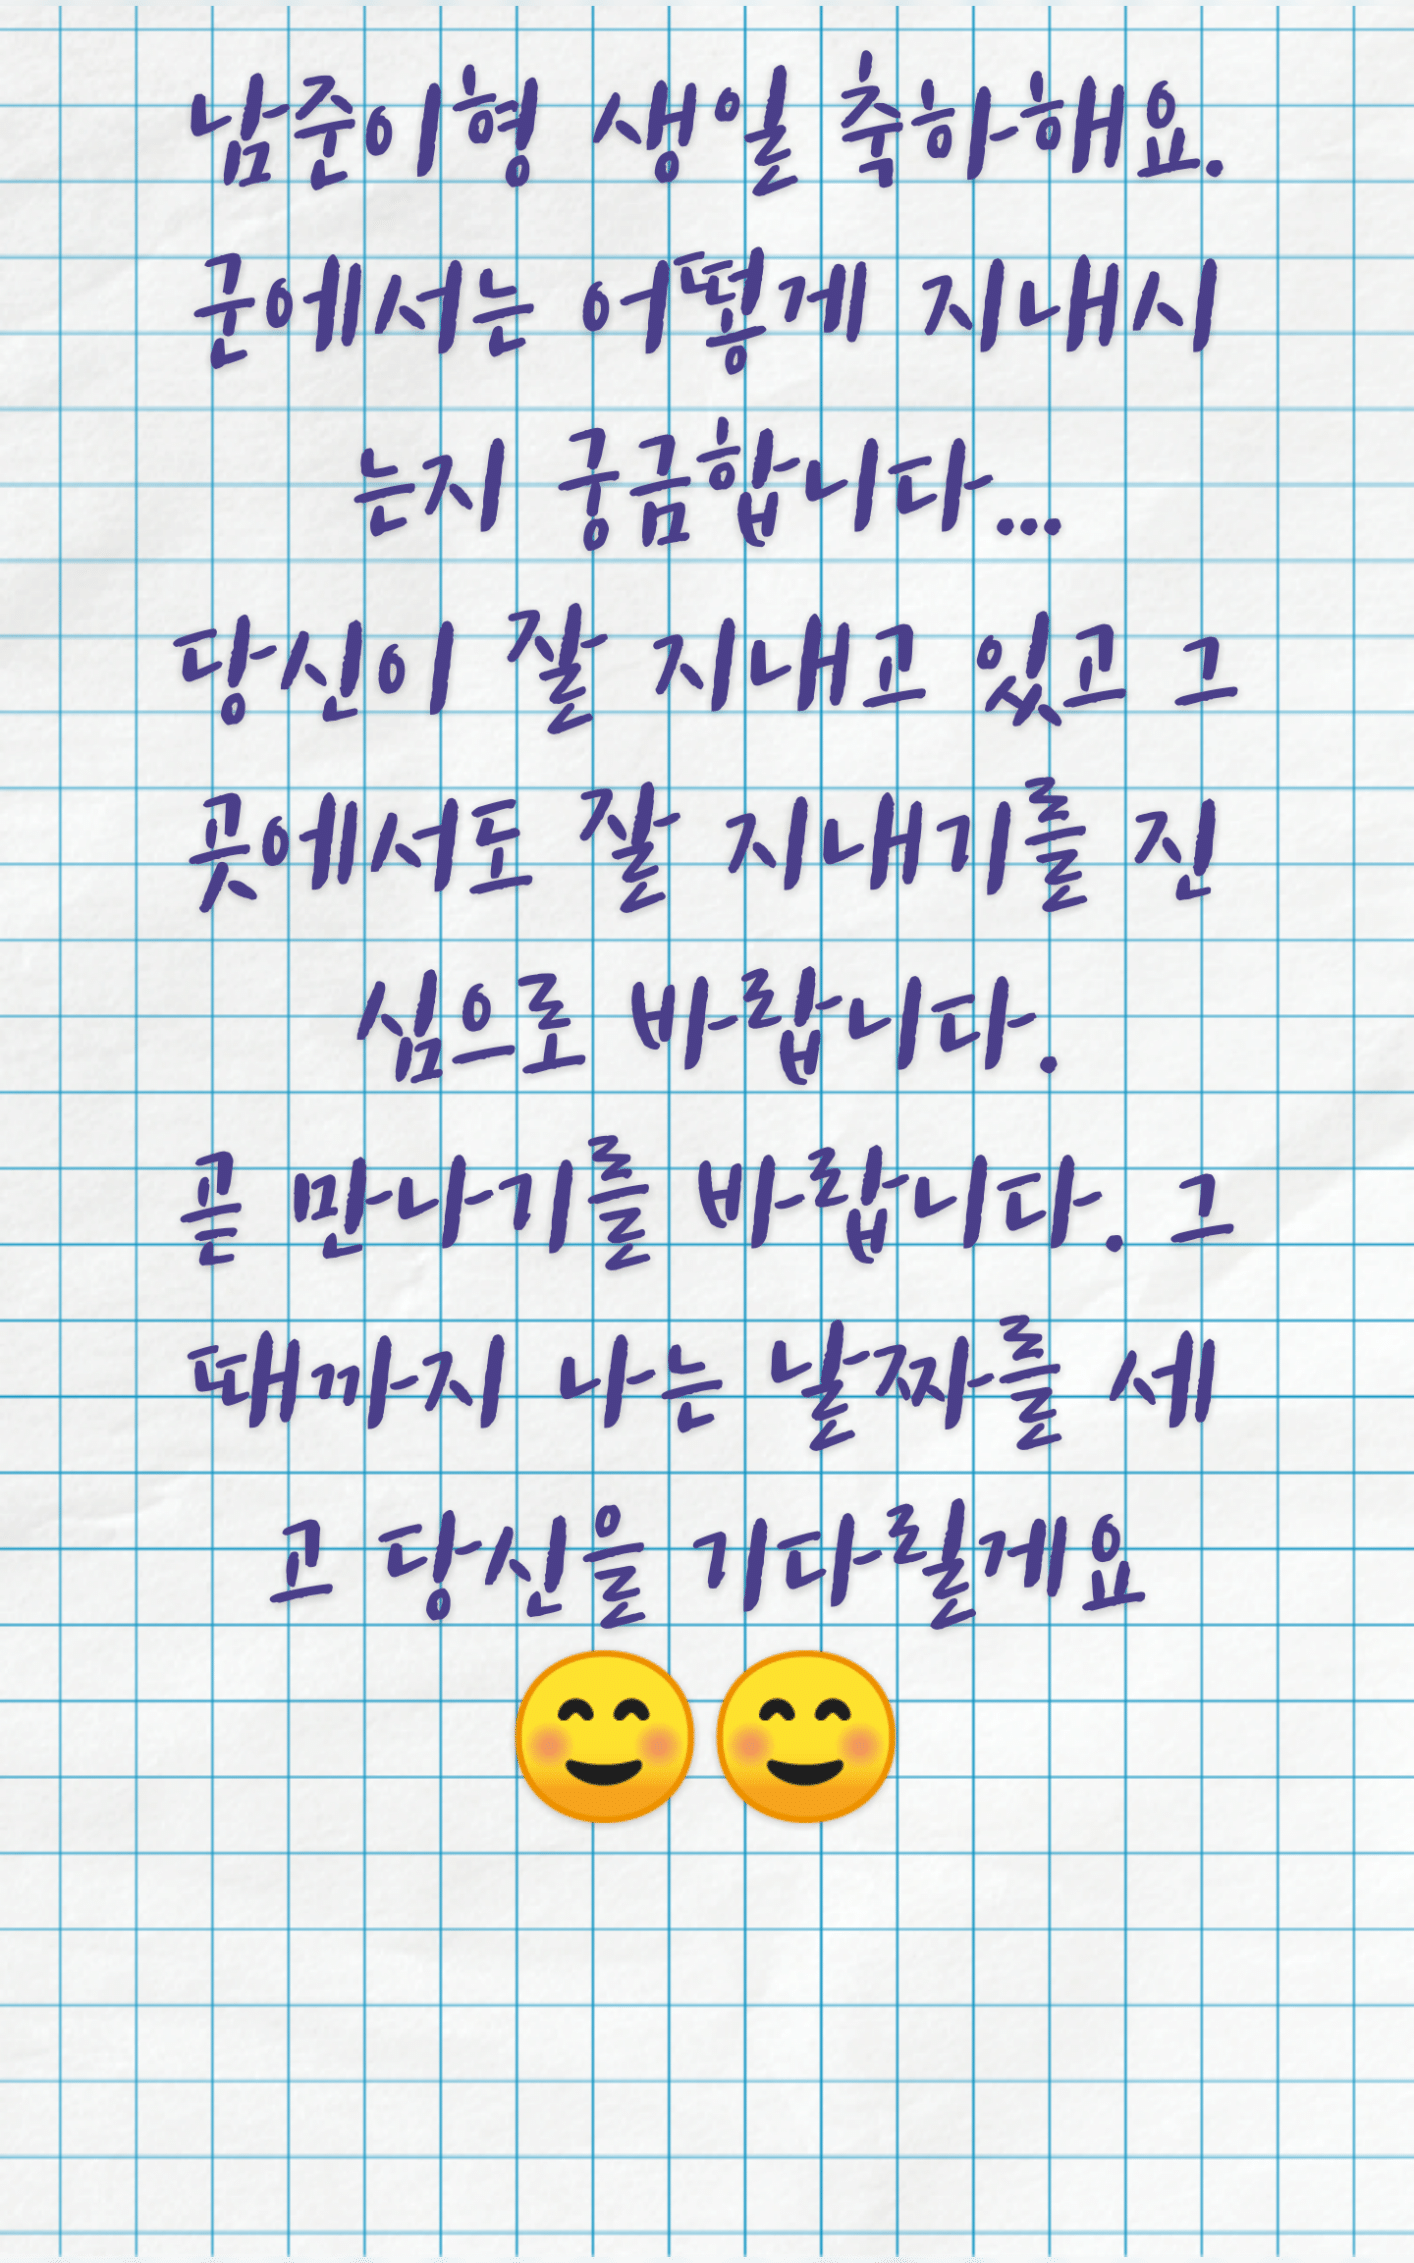 남준이형 생일 축하해요.
군에서는 어떻게 지내시
는지 궁금합니다...
당신이 잘 지내고 있고 그
곳에서도 잘 지내기를 진
심으로 바랍니다.
곧 만나기를 바랍니다. 그
때까지 나는 날짜를 세
고 당신을 기다릴게요
😊😊